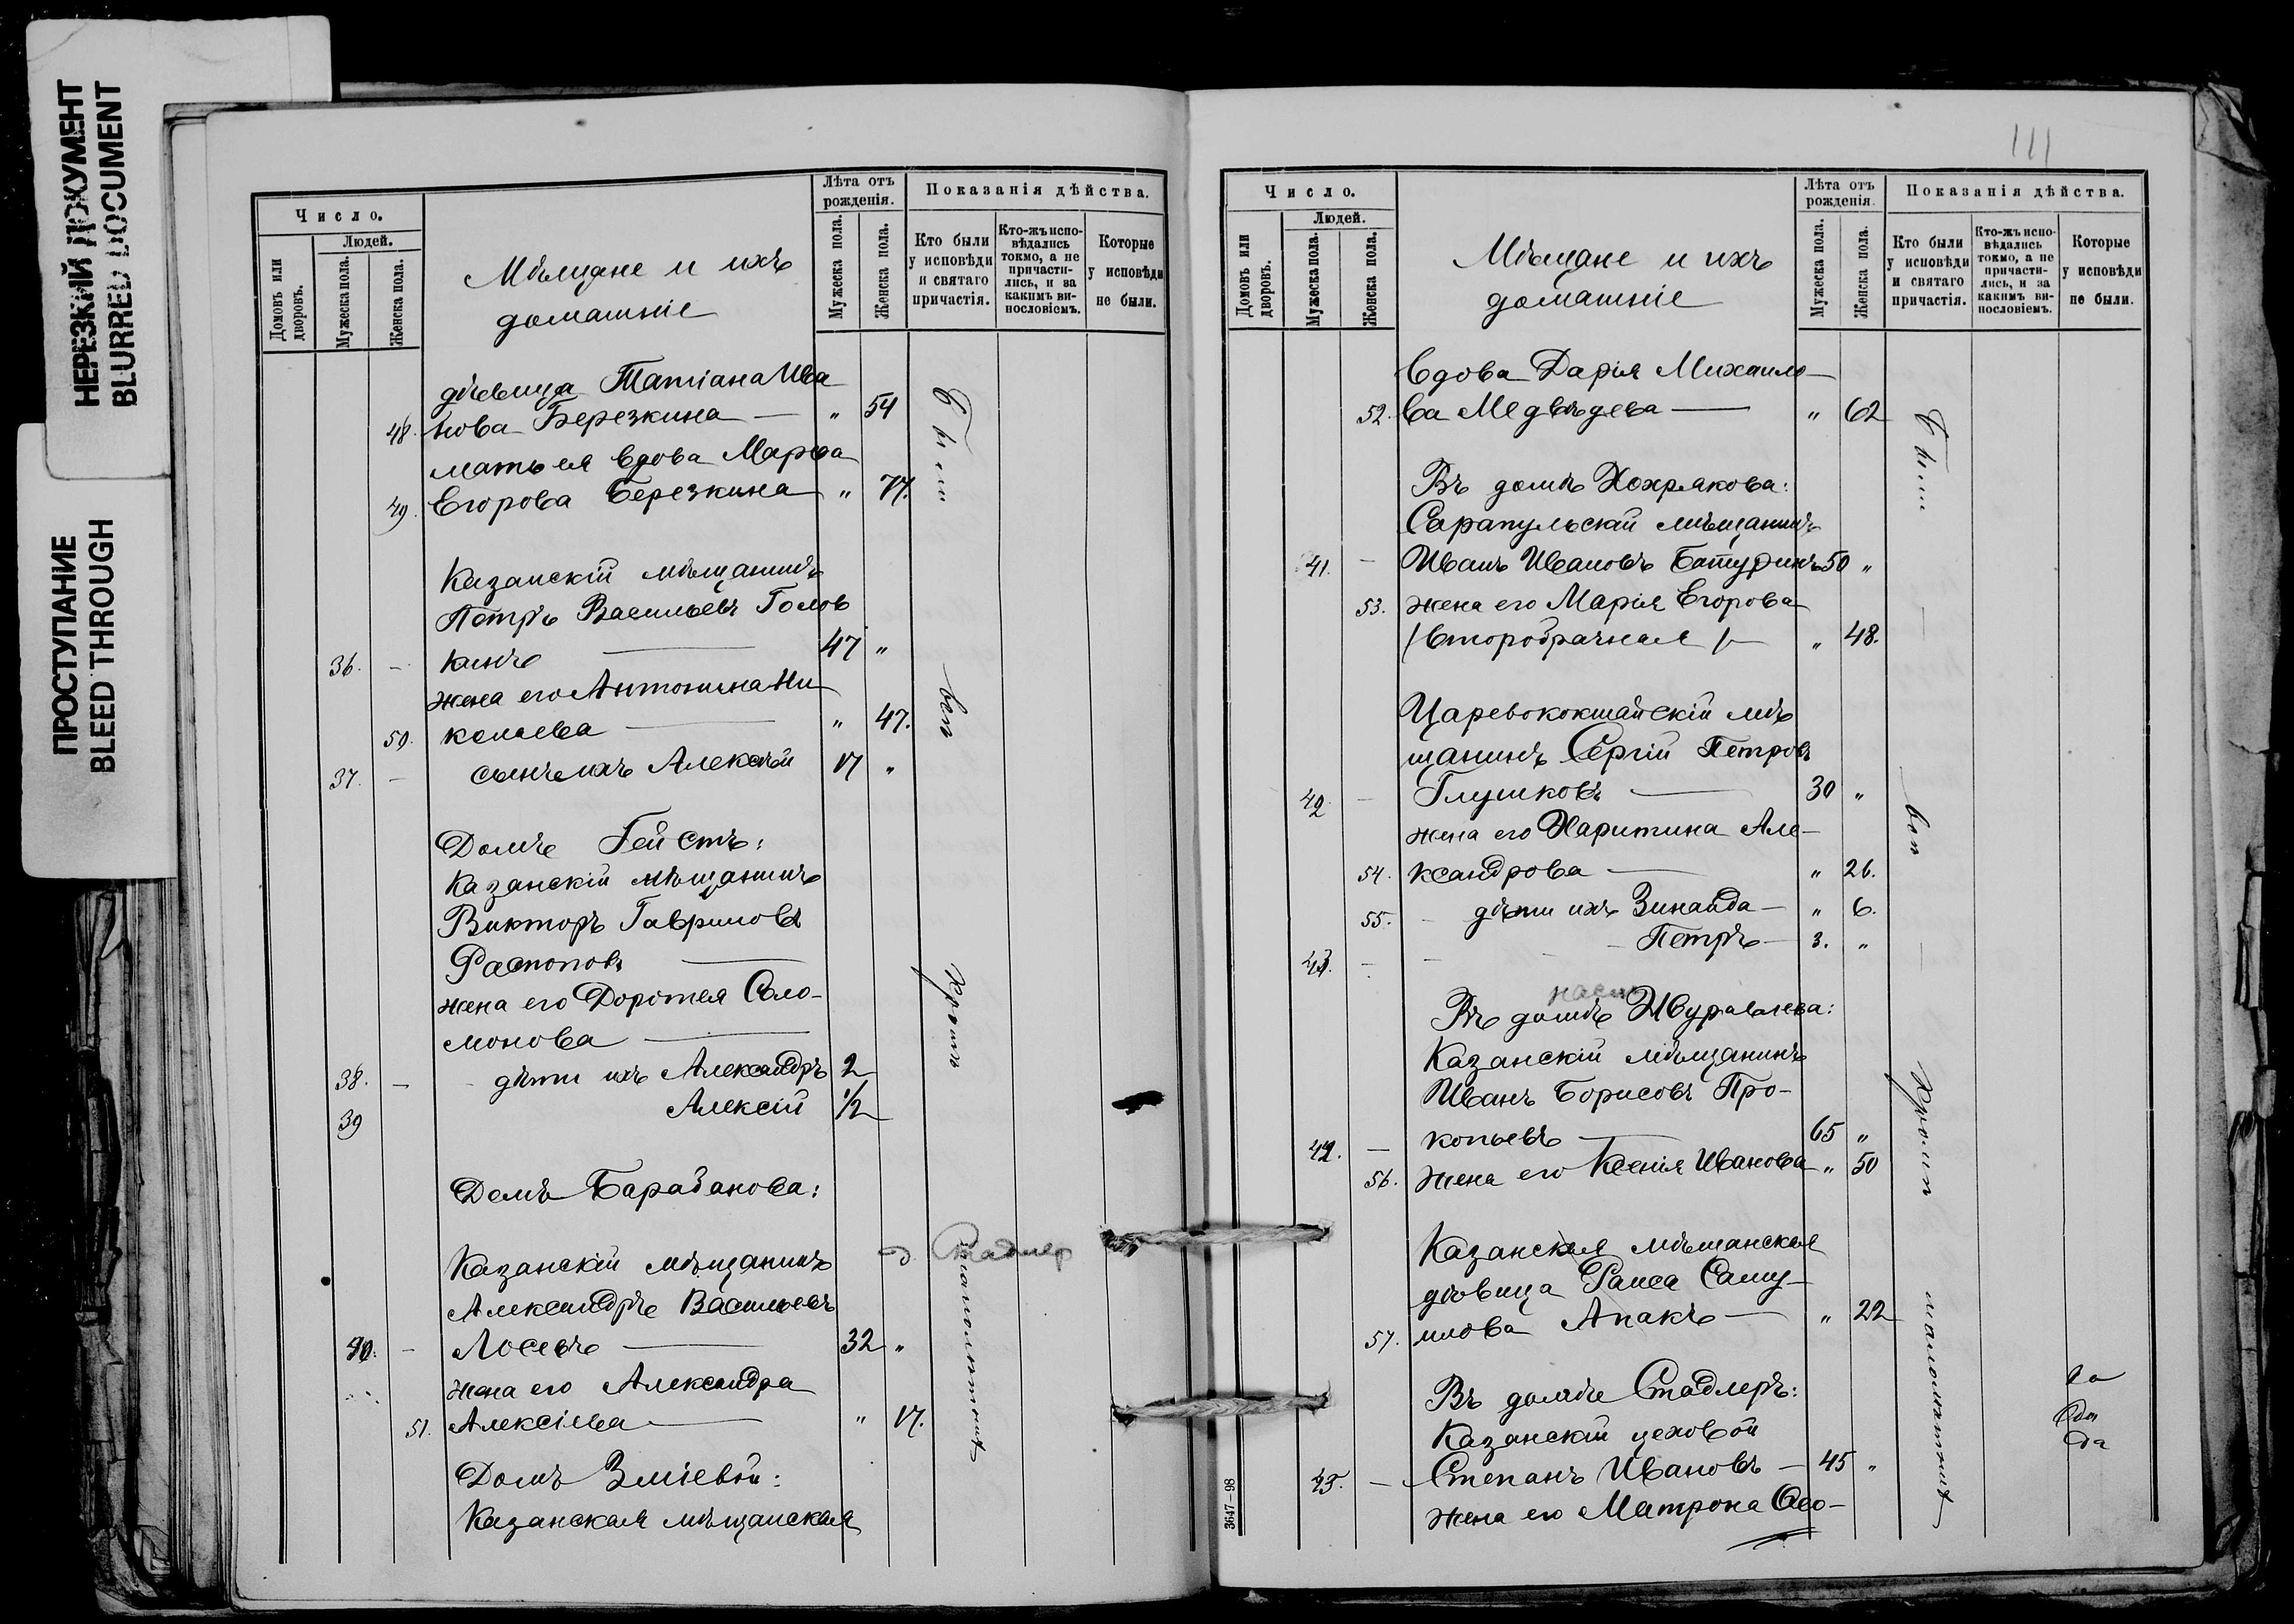 НЕРЕЗКИЙ ДОКУМЕНТ
BLURRED DOCUMENT
ПРОСТУПАНИЕ
BLEED THROUGH
Число.
Людей.
Домовъ или дворовъ.
Мужеска пола.
Женска пола.
Мѣщане и ихъ
домашніе
Лѣта отъ рожденія.
Мужеска пола.
Женска пола.
Показанія дѣйства.
Кто были у исповѣди и святаго причастія.
Кто-жъ испо-вѣдались токмо, а не причасти-лись, и за какимъ ви-нословіемъ.
Которые у исповѣди не были.
дѣвица Татіана Ива
48. нова Березкина — " 54
мать ея вдова Марѳа
49. Егорова Березкина " 77.
Казанскій мѣщанинъ
Петръ Васильевъ Голов
36. - кинъ — 47 "
жена его Антонина Ни
50. колаева — " 47.
37. - сынъ ихъ Алексѣй 17 "
Домъ Гейстъ:
Казанскій мѣщанинъ
Викторъ Гавриловъ
Распоповъ —
жена его Доротея Соло-
монова —
38. - дѣти ихъ Александръ 2
39 Алексій 1/2
Домъ Барабанова:
Казанскій мѣщанинъ
д. Стадлер
Александръ Васильевъ
40. - Лосевъ — 32 "
жена его Александра
51. Алексіева — " 17.
Домъ Зміевой:
Казанская мѣщанская
Были
всѣ
кромѣ
малолѣтнихъ
111
Число.
Людей.
Домовъ или дворовъ.
Мужеска пола.
Женска пола.
Мѣщане и ихъ
домашніе
Лѣта отъ рожденія.
Мужеска пола.
Женска пола.
Показанія дѣйства.
Кто были у исповѣди и святаго причастія.
Кто-жъ испо-вѣдались токмо, а не причасти-лись, и за какимъ ви-нословіемъ.
Которые у исповѣди не были.
вдова Дарія Михаило-
52. ва Медвѣдева — " 62
Въ домѣ Хохрякова:
Сарапульскій мѣщанинъ
41. - Иванъ Ивановъ Батуринъ 50 "
53. жена его Марія Егорова
/второбрачная/ — " 48.
Царевококшайскій мѣ
щанинъ Сергій Петровъ
42. - Глушковъ — 30 "
жена его Харитина Але-
54. ксандрова — " 26.
55. - дѣти ихъ Зинаида — " 6.
43. - Петръ — 3. "
насл
Въ домѣ Журавлева:
Казанскій мѣщанинъ
Иванъ Борисовъ Про-
42. - копьевъ — 65 "
56. жена его Ксенія Иванова " 50
Казанская мѣщанская
дѣвица Раиса Саму-
57. илова Апакъ — " 22
Въ домѣ Стадлеръ:
Казанскій цеховой
45. - Степанъ Ивановъ — 45 "
жена его Матрона
Были
всѣ
кромѣ
малолѣтнихъ
да
3647—98